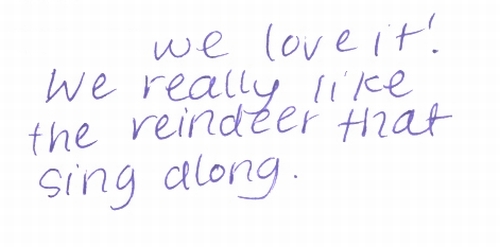 we love it!
We really like
the reindeer that
sing along.